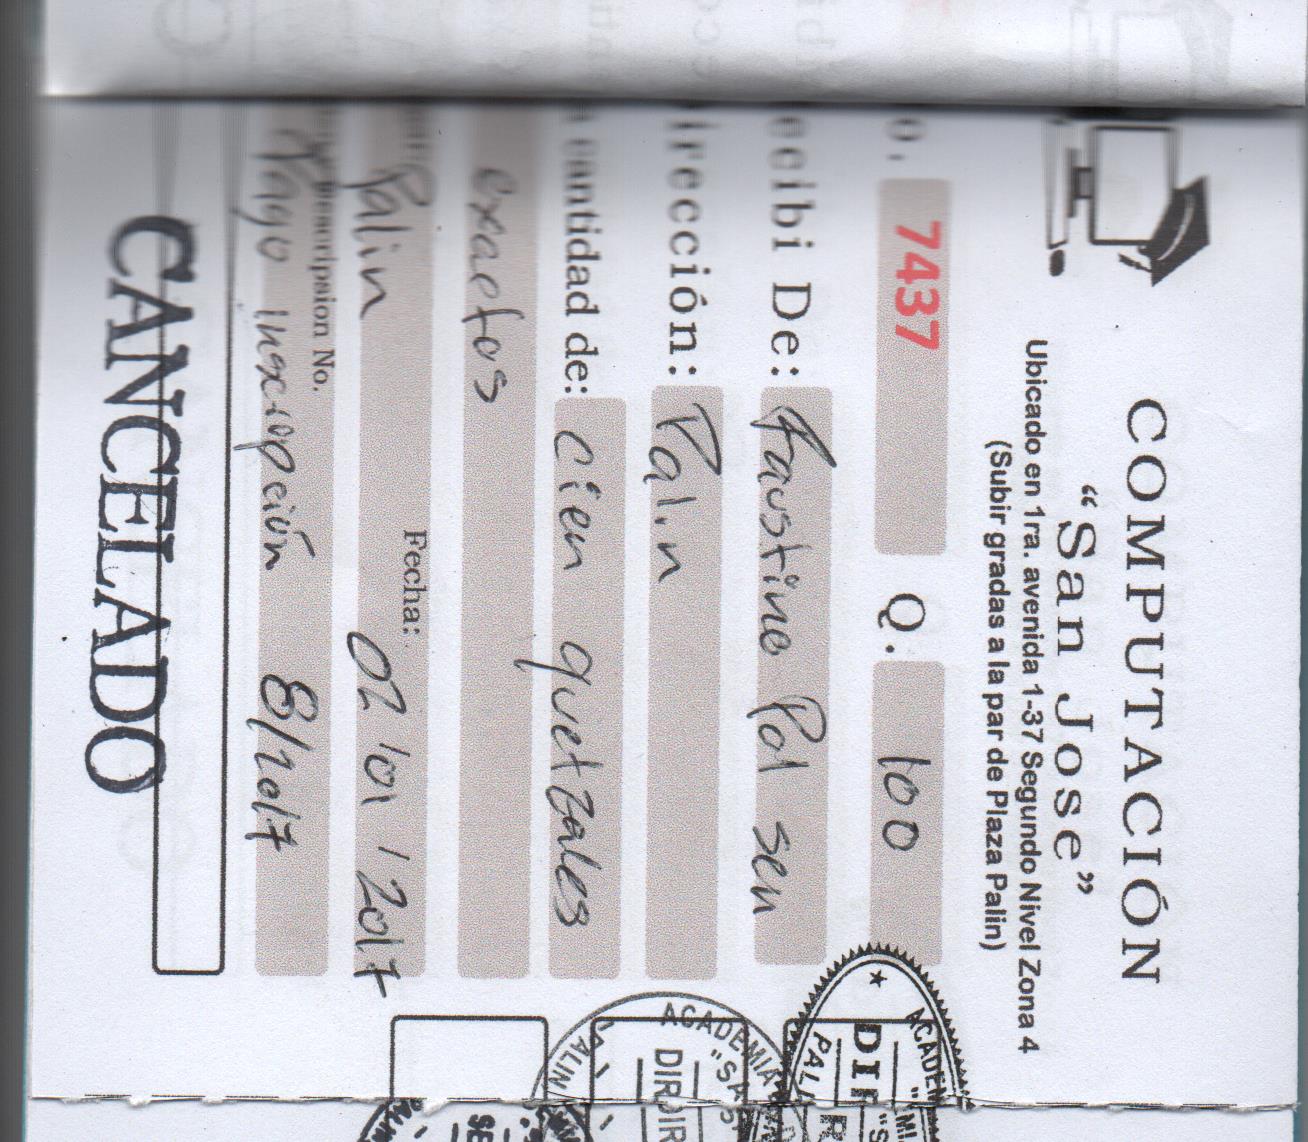 COMPUTACIÓN
“San Jose”
Ubicado en 1ra. avenida 1-37 Segundo Nivel Zona 4
(Subir gradas a la par de Plaza Palin)
o. 7437 Q. 100
ecibi De: Faustino Pol sen
irección: Palin
cantidad de: cien quetzales
exactos
Palin Fecha: 02/01/2017
Descripsion No.
Pago inscripción 8/2017
CANCELADO
ACADEM
DIR
PALI
ACADEMIA
"SA
DIR
PALIN
MI
"S
R
DIR
SE